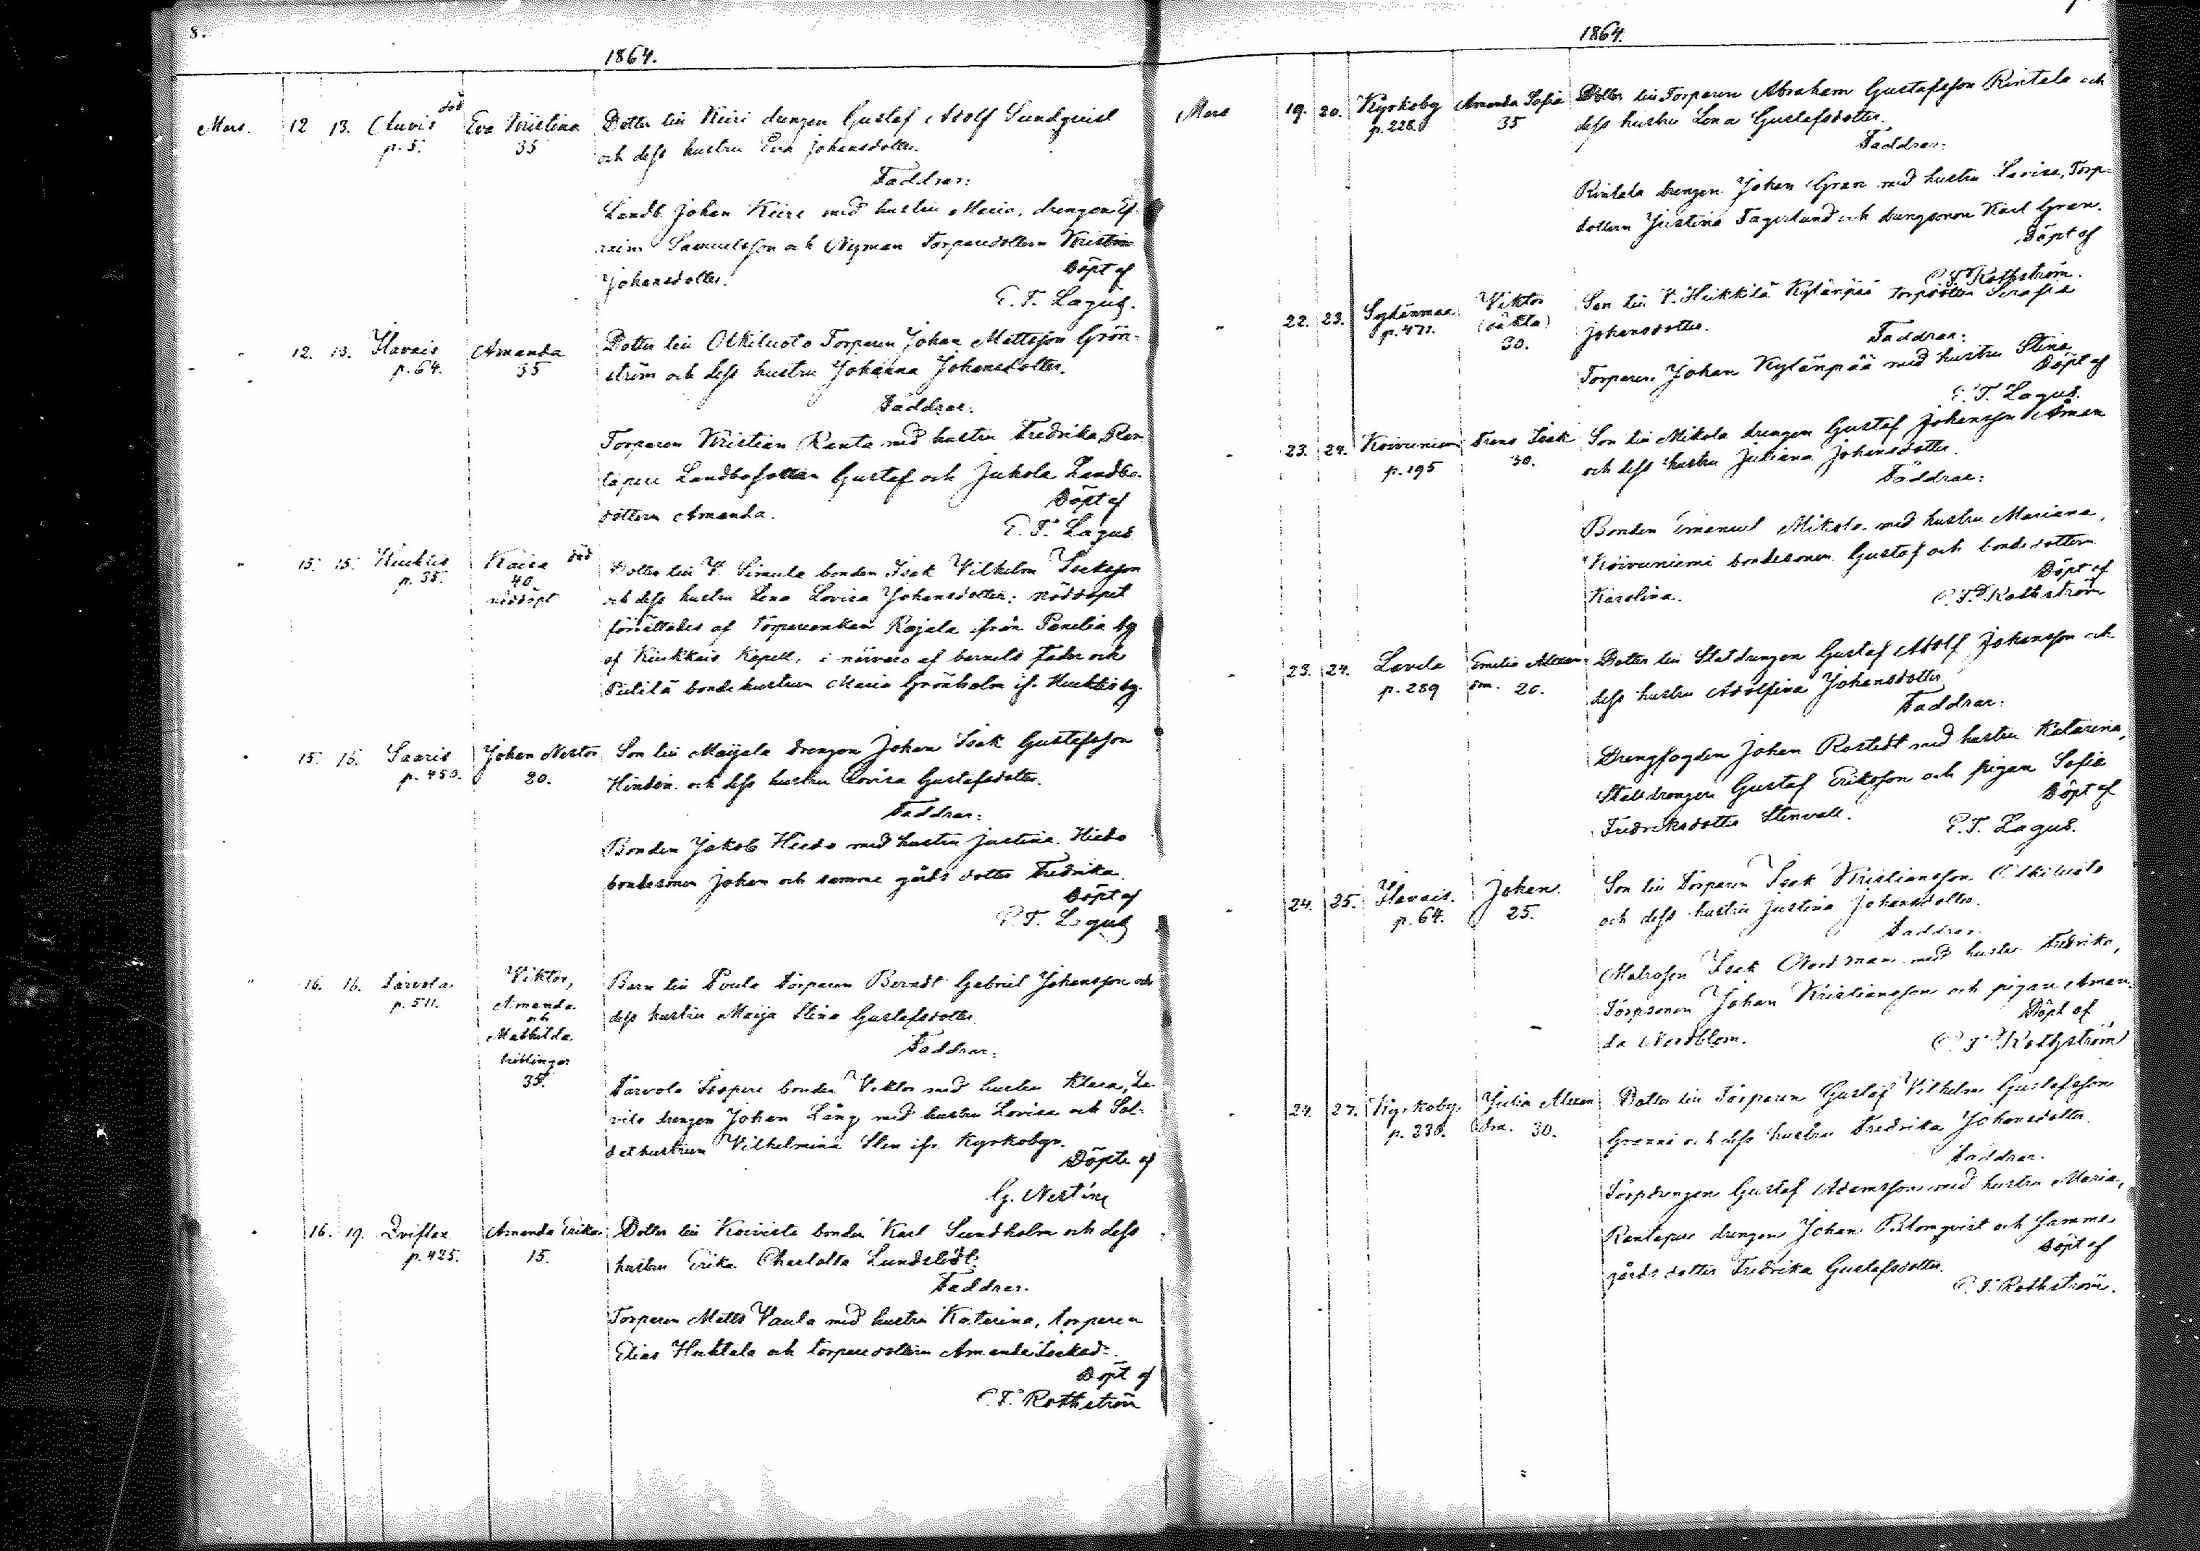 8.
1864.
Mars. 12 13. Cluvis död Eva Kristina Dotter till Kiiri drengen Gustaf Adolf Sundqvist
p. 5. 35 och dess hustru Eva Johansdotter.
Faddrar:
Landb. Johan Kiiri med hustru Maria, drengen Ef-
raim Samuelsson och Nyman Torparedottern Kristina
Johansdotter. Döpt af
E. T. Lagus.
" 12. 13. Ilavais Amanda Dotter till Olkiluoto Torparen Johan Mattsson Grön-
p. 64. 35 ström och dess hustru Johanna Johansdotter.
Faddrar:
Torparen Kristian Ranta med hustru Fredrika, Ran-
tapere Landbosonen Gustaf och Juhola Landbo-
dottern Amanda. Döpt af
E. T. Lagus
" 15. 15. Hucktis Kaisa död Dotter till V. Simula bonden Isak Vilhelm Isaksson
p. 35. 40. och dess hustru Lena Lovisa Johansdotter; nöddopet
nöddöpt förrättades af Torpareenkan Rajala ifrån Panelia by
af Kiukkais Kapell, i närvaro af barnets fader och
Pietilä bondehustrun Maria Grönholm ifr. Hucktis by.
" 15. 16. Saaris Johan Nestor Son till Maijala drengen Johan Isak Gustafsson
p. 450. 20. Hindén och dess hustru Lovisa Gustafsdotter.
Faddrar:
Bonden Jakob Hiedo med hustru Justina, Hiedo
bondesonen Johan och samma gårds dotter Fredrika.
Döpt af
E. T. Lagus
" 16. 16. Tarvola Viktor, Barn till Poula torparen Berndt Gabriel Johansson och
p. 511. Amanda dess hustru Maija Stina Gustafsdotter.
och
Mathilda Faddrar:
trillingar
35. Tarvola Seppere bonden Viktor med hustru Klara, La-
vila drengen Johan Lång med hustru Lovisa och Sol-
dathustrun Vilhelmina Sten ifr. Kyrkobyn.
Döpte af
G. Nestine
" 16. 19. Qviflax Amanda Erika Dotter till Koivisto bonden Karl Sundholm och dess
p. 425. 15. hustru Erika Charlotta Lundstedt.
Faddrar.
Torparen Matts Vaula med hustru Katarina, torparen
Elias Huhtala och torparedottern Amanda Isaksd:.
Döpt af
C. F. Rothström
1864.
Mars 19. 20. Kyrkoby Amanda Sofia Dotter till Torparen Abraham Gustafsson Rintala och
p. 228. 35 dess hustru Lena Gustafsdotter.
Faddrar:
Rintala drengen Johan Gran med hustru Lovisa, Torp-
dottern Justina Fagerlund och drengsonen Karl Gran.
Döpt af
C. F. Rothström.
" 22. 23. Sydänmaa Viktor Son till V. Heikkilä Kylänpää torpdotter Serafia
p. 471. (oäkta) Johansdotter.
30. Faddrar:
Torparen Johan Kylänpää med hustru Stina
Döpt af
E. T. Lagus.
" 23. 24. Koivuniemi Frans Isak Son till Mikola drengen Gustaf Johansson Åman
p. 195 30. och dess hustru Juliana Johansdotter.
Faddrar:
Bonden Emanuel Mikola med hustru Mariana,
Koivuniemi bondesonen Gustaf och bondedottern
Karolina. Döpt af
C. F. Rothström
" 23. 24. Lavila Emilia Alexan- Dotter till Statdrengen Gustaf Adolf Johansson och
p. 289 dra. 20. dess hustru Adolfina Johansdotter
Faddrar:
Drengfogden Johan Rostedt med hustru Katarina,
Stalldrengen Gustaf Eriksson och pigan Sofia
Fredriksdotter Stenvall. Döpt af
E. T. Lagus.
" 24. 25. Ilavais. Johan. Son till torparen Isak Kristiansson Olkiluoto
p. 64. 25. och dess hustru Justina Johansdotter.
Faddrar.
Matrosen Isak Nordman med hustru Fredrika,
Torpsonen Johan Kristiansson och pigan Aman-
da Nordblom. Döpt af
C. F. Rothström
" 24. 27. Kyrkoby. Julia Alexan- Dotter till Torparen Gustaf Vilhelm Gustafsson
p. 230. dra. 30. Granni och dess hustru Fredrika Johansdotter.
Faddrar.
Torpdrengen Gustaf Adamsson med hustru Maria,
Rantapere drengen Johan Blomqvist och samma
gårds dotter Fredrika Gustafsdotter. Döpt af
C. F. Rothström.